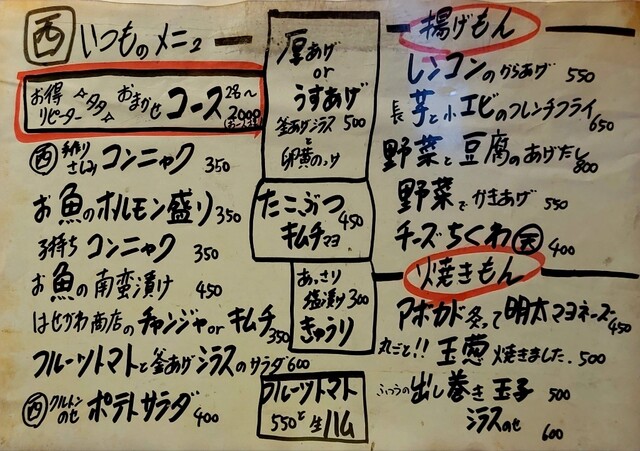 西 いつものメニュー
お得 リピーター 多タ おまかせ コース 2名〜 2000 (お一人様)
西 手作り さしみ コンニャク 350
お魚のホルモン盛り 350
子持ち コンニャク 350
お魚の南蛮漬け 450
はせがわ商店のチャンジャorキムチ 350
フルーツトマトと釜あげシラスのサラダ 600
西 クルトンのせ ポテトサラダ 400
厚あげ
or
うすあげ
釜あげシラス 500
と
卵黄のっけ
たこぶつ
キムチマヨ 450
あっさり
塩漬け 300
きゅうり
フルーツトマト
と
550 生ハム
揚げもん
レンコンのからあげ 550
長芋と小エビのフレンチフライ 650
野菜と豆腐のあげだし 800
野菜でかきあげ 550
チーズちくわ天 400
焼きもん
アボカド炙って明太マヨネーズ 450
丸ごと!! 玉葱焼きました. 500
ふつうの出し巻き玉子 500
シラスのせ 600